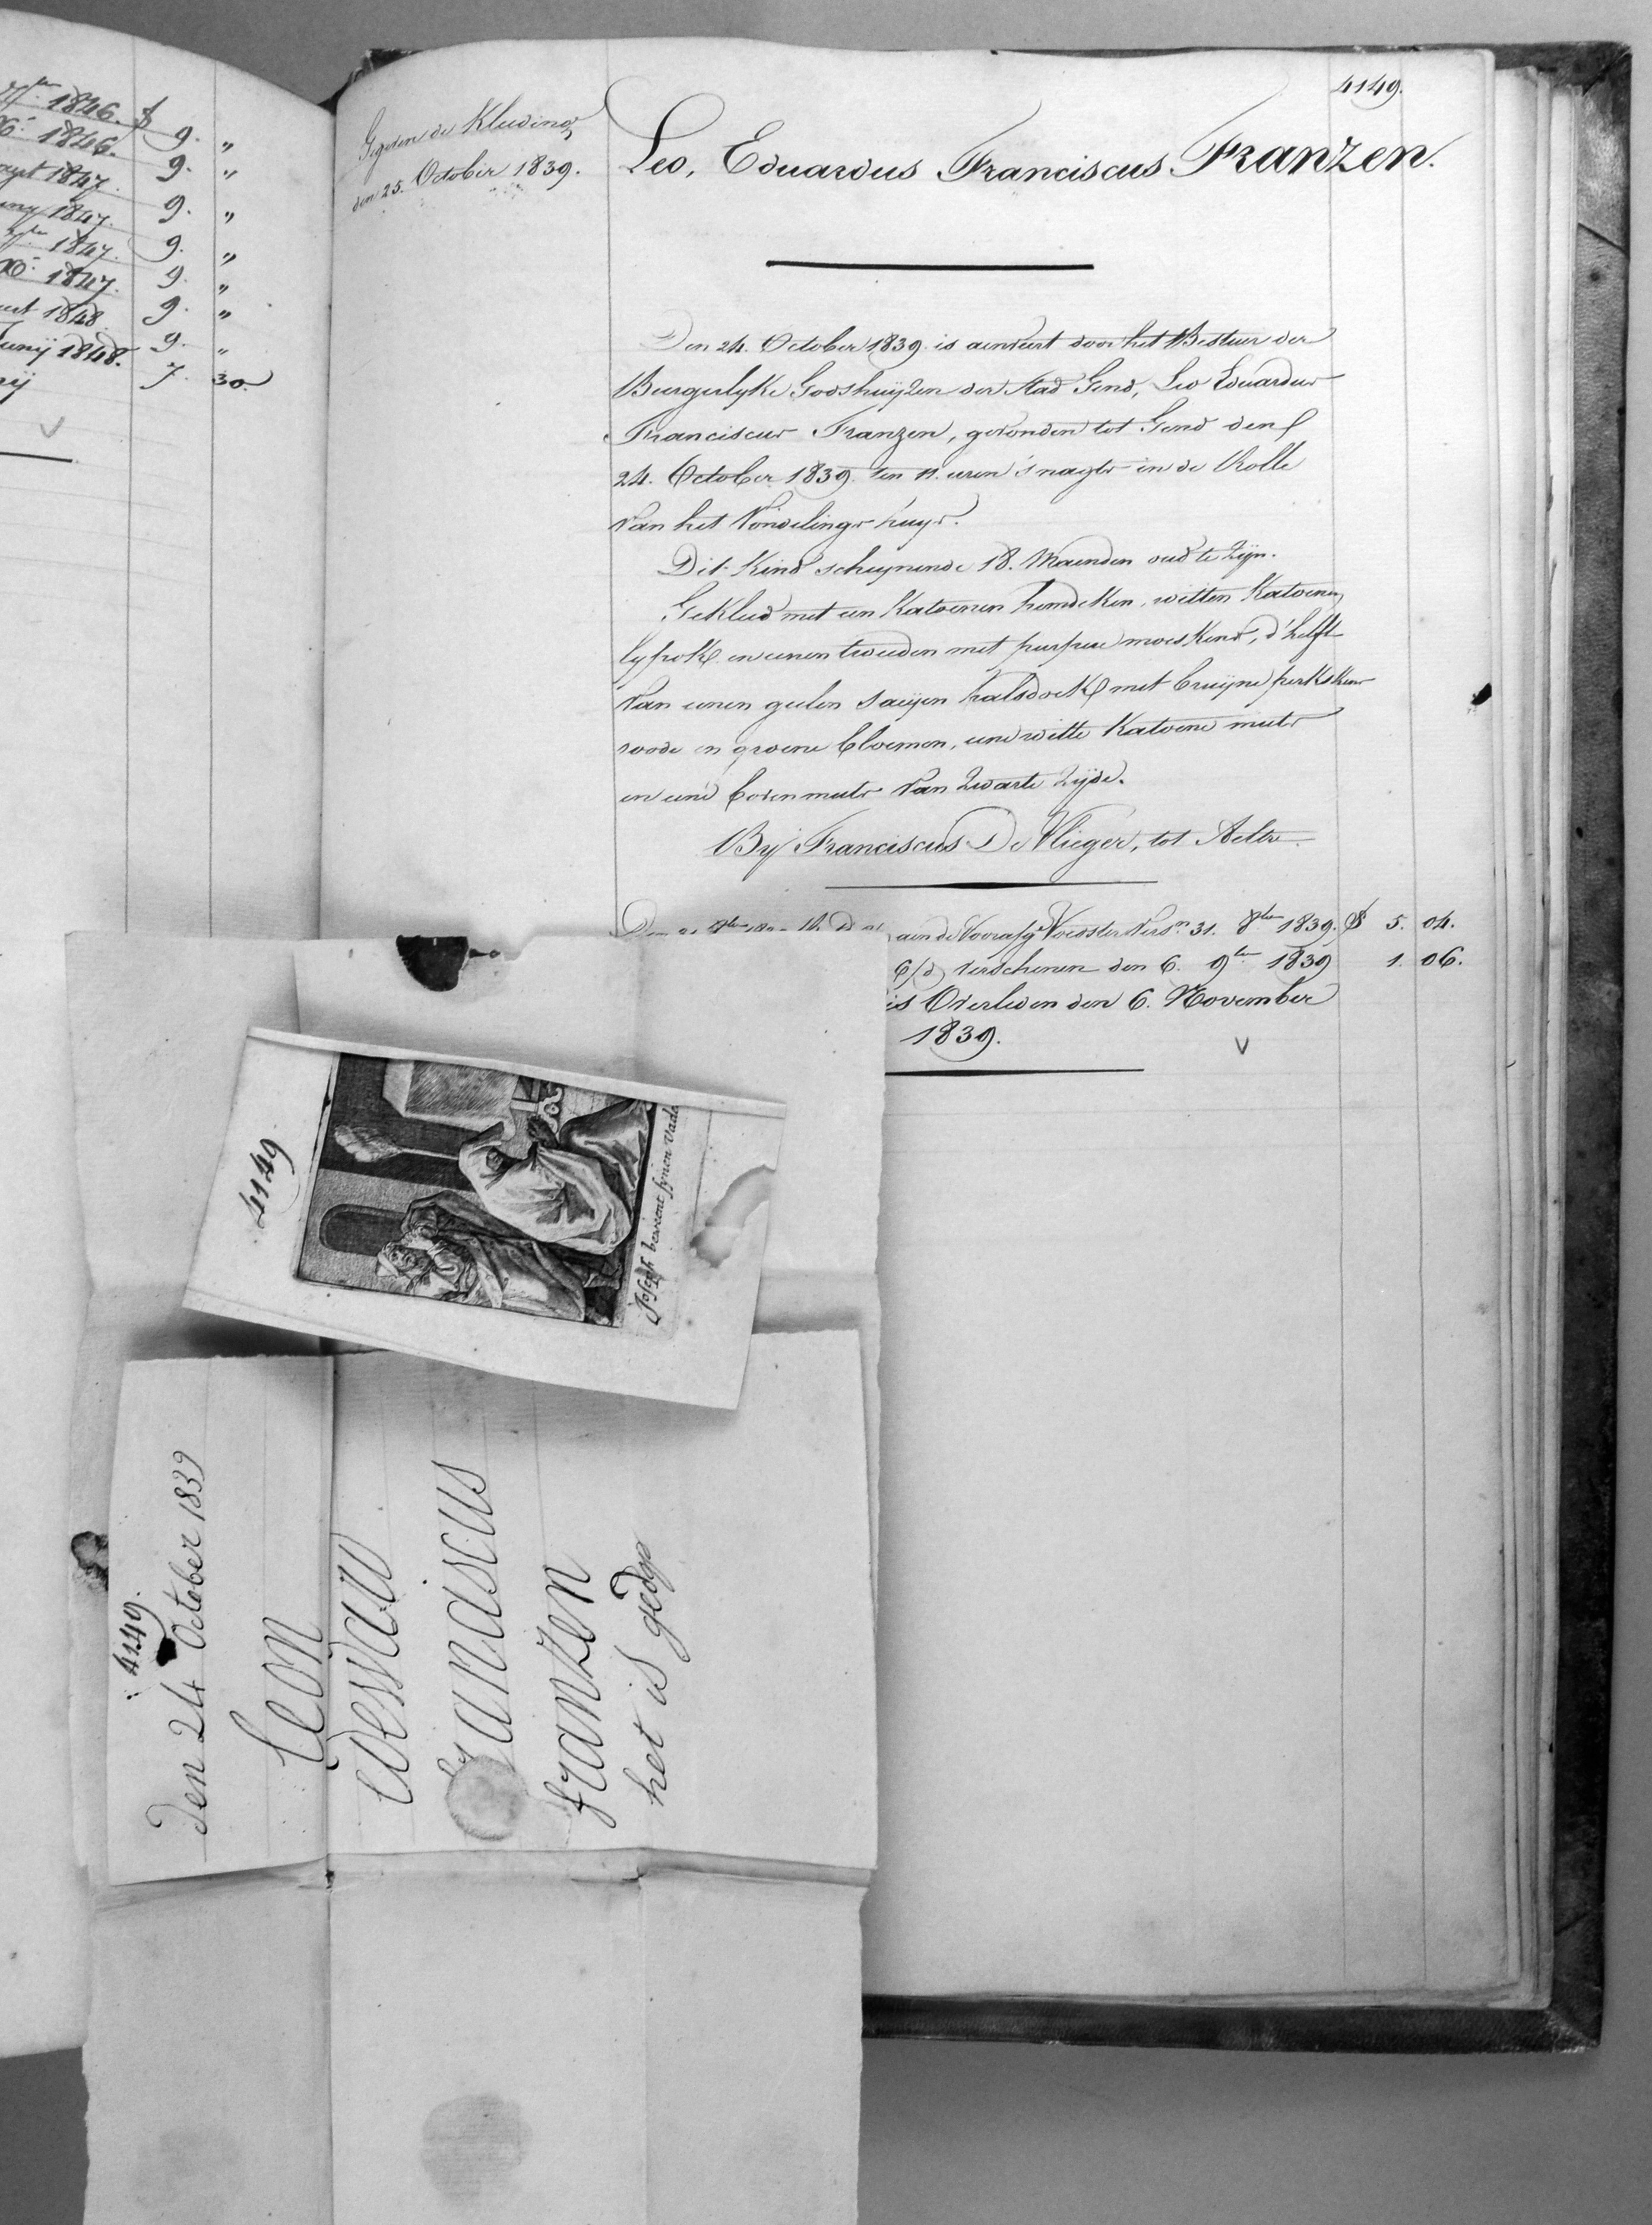 1846. $ 9. "
1846. 9. "
1847. 9. "
1847. 9. "
1847. 9. "
1847. 9. "
1848 9. "
Junij 1848. 9. "
7. 30.
4149.
Gegeven de Kleeding
den 25. October 1839.
Leo, Eduardus Franciscus Franzen.
Den 24. October 1839. is aenveert door het Bestuer der
Burgerlyke Godshuyzen der Stad Gend, Leo Eduardus
Franciscus Franzen, gevonden tot Gend den
24. October 1839. ten 11. uren 's nagts in de Rolle
van het Vondelings huys.
Dit Kind schynende 18. Maenden oud te zyn.
Gekleed met een Katoenen hemdeken, witten Katoenen
lyfrok en eenen tweeden met purpere moeskens, d'helft
van eenen geelen saeyen halsdoek met bruyne perkskens
roode en groene bloemen, eene witte Katoene muts
en eene bovenmuts van zwarte zyde.
By Franciscus De Vlieger, tot Aeltre.
aen de Voorafg. Voedster Vers.n 31. 8ber 1839. $ 5. 04.
verschenen den 6. 9ber 1839 1. 06.
is Overleden den 6. November
1839.
V
4149
Joseph beweent synen Vade
4149.
den 24 October 1839
leon
edewau
franciscus
franzen
het is gedop